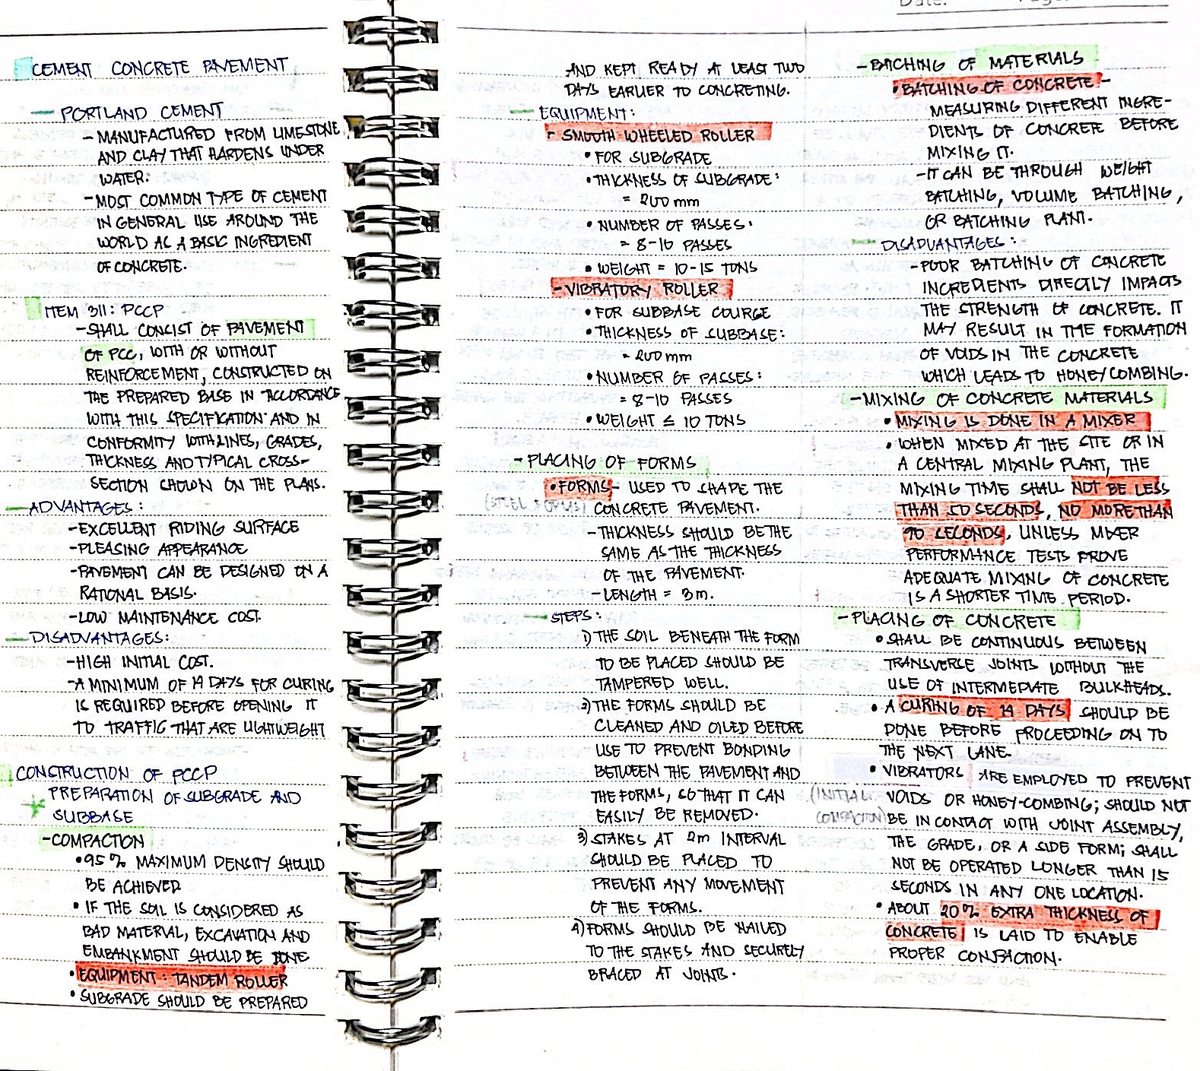 Date:
CEMENT CONCRETE PAVEMENT
- PORTLAND CEMENT
- MANUFACTURED FROM LIMESTONE
AND CLAY THAT HARDENS UNDER
WATER.
- MOST COMMON TYPE OF CEMENT
IN GENERAL USE AROUND THE
WORLD AS A BASIC INGREDIENT
OF CONCRETE.
ITEM 311: PCCP
- SHALL CONSIST OF PAVEMENT
OF PCC, WITH OR WITHOUT
REINFORCEMENT, CONSTRUCTED ON
THE PREPARED BASE IN ACCORDANCE
WITH THIS SPECIFICATION AND IN
CONFORMITY WITH LINES, GRADES,
THICKNESS AND TYPICAL CROSS-
SECTION SHOWN ON THE PLANS.
- ADVANTAGES:
- EXCELLENT RIDING SURFACE
- PLEASING APPEARANCE
- PAVEMENT CAN BE DESIGNED ON A
RATIONAL BASIS.
- LOW MAINTENANCE COST.
- DISADVANTAGES:
- HIGH INITIAL COST.
- A MINIMUM OF 14 DAYS FOR CURING
IS REQUIRED BEFORE OPENING IT
TO TRAFFIC THAT ARE LIGHTWEIGHT
CONSTRUCTION OF PCCP
* PREPARATION OF SUBGRADE AND
SUBBASE
- COMPACTION
• 95% MAXIMUM DENSITY SHOULD
BE ACHIEVED
• IF THE SOIL IS CONSIDERED AS
BAD MATERIAL, EXCAVATION AND
EMBANKMENT SHOULD BE DONE
• EQUIPMENT: TANDEM ROLLER
• SUBGRADE SHOULD BE PREPARED
AND KEPT READY AT LEAST TWO
DAYS EARLIER TO CONCRETING.
- EQUIPMENT:
- SMOOTH WHEELED ROLLER
• FOR SUBGRADE
• THICKNESS OF SUBGRADE:
= 200 mm
• NUMBER OF PASSES:
= 8-10 PASSES
• WEIGHT = 10-15 TONS
- VIBRATORY ROLLER
• FOR SUBBASE COURSE
• THICKNESS OF SUBBASE:
= 200 mm
• NUMBER OF PASSES:
= 8-10 PASSES
• WEIGHT ≤ 10 TONS
- PLACING OF FORMS
• FORMS - USED TO SHAPE THE
CONCRETE PAVEMENT.
- THICKNESS SHOULD BE THE
SAME AS THE THICKNESS
OF THE PAVEMENT.
- LENGTH = 3m.
- STEPS:
1) THE SOIL BENEATH THE FORM
TO BE PLACED SHOULD BE
TAMPERED WELL.
2) THE FORMS SHOULD BE
CLEANED AND OILED BEFORE
USE TO PREVENT BONDING
BETWEEN THE PAVEMENT AND
THE FORMS, SO THAT IT CAN
EASILY BE REMOVED.
3) STAKES AT 2m INTERVAL
SHOULD BE PLACED TO
PREVENT ANY MOVEMENT
OF THE FORMS.
4) FORMS SHOULD BE NAILED
TO THE STAKES AND SECURELY
BRACED AT JOINTS.
- BATCHING OF MATERIALS
• BATCHING OF CONCRETE -
MEASURING DIFFERENT INGRE-
DIENTS OF CONCRETE BEFORE
MIXING IT.
- IT CAN BE THROUGH WEIGHT
BATCHING, VOLUME BATCHING,
OR BATCHING PLANT.
- DISADVANTAGES:
- POOR BATCHING OF CONCRETE
INGREDIENTS DIRECTLY IMPACTS
THE STRENGTH OF CONCRETE. IT
MAY RESULT IN THE FORMATION
OF VOIDS IN THE CONCRETE
WHICH LEADS TO HONEYCOMBING.
- MIXING OF CONCRETE MATERIALS
• MIXING IS DONE IN A MIXER
• WHEN MIXED AT THE SITE OR IN
A CENTRAL MIXING PLANT, THE
MIXING TIME SHALL NOT BE LESS
THAN 50 SECONDS, NO MORE THAN
90 SECONDS, UNLESS MIXER
PERFORMANCE TESTS PROVE
ADEQUATE MIXING OF CONCRETE
IS A SHORTER TIME PERIOD.
- PLACING OF CONCRETE
• SHALL BE CONTINUOUS BETWEEN
TRANSVERSE JOINTS WITHOUT THE
USE OF INTERMEDIATE BULKHEADS.
• A CURING OF 14 DAYS SHOULD BE
DONE BEFORE PROCEEDING ON TO
THE NEXT LANE.
• VIBRATORS ARE EMPLOYED TO PREVENT
(INITIAL VOIDS OR HONEY-COMBING; SHOULD NOT
COMPACTION) BE IN CONTACT WITH JOINT ASSEMBLY,
THE GRADE, OR A SIDE FORM; SHALL
NOT BE OPERATED LONGER THAN 15
SECONDS IN ANY ONE LOCATION.
• ABOUT 20% EXTRA THICKNESS OF
CONCRETE IS LAID TO ENABLE
PROPER COMPACTION.